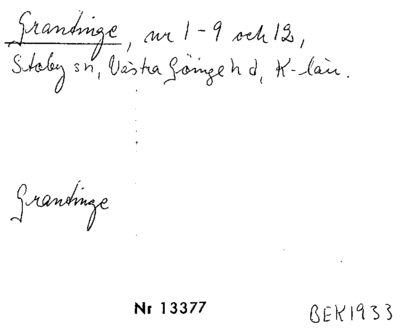 Grantinge, nr 1-9 och 12,
Stoby sn, Västra Göinge hd, K-län.
Grantinge
Nr 13377
BEK1933